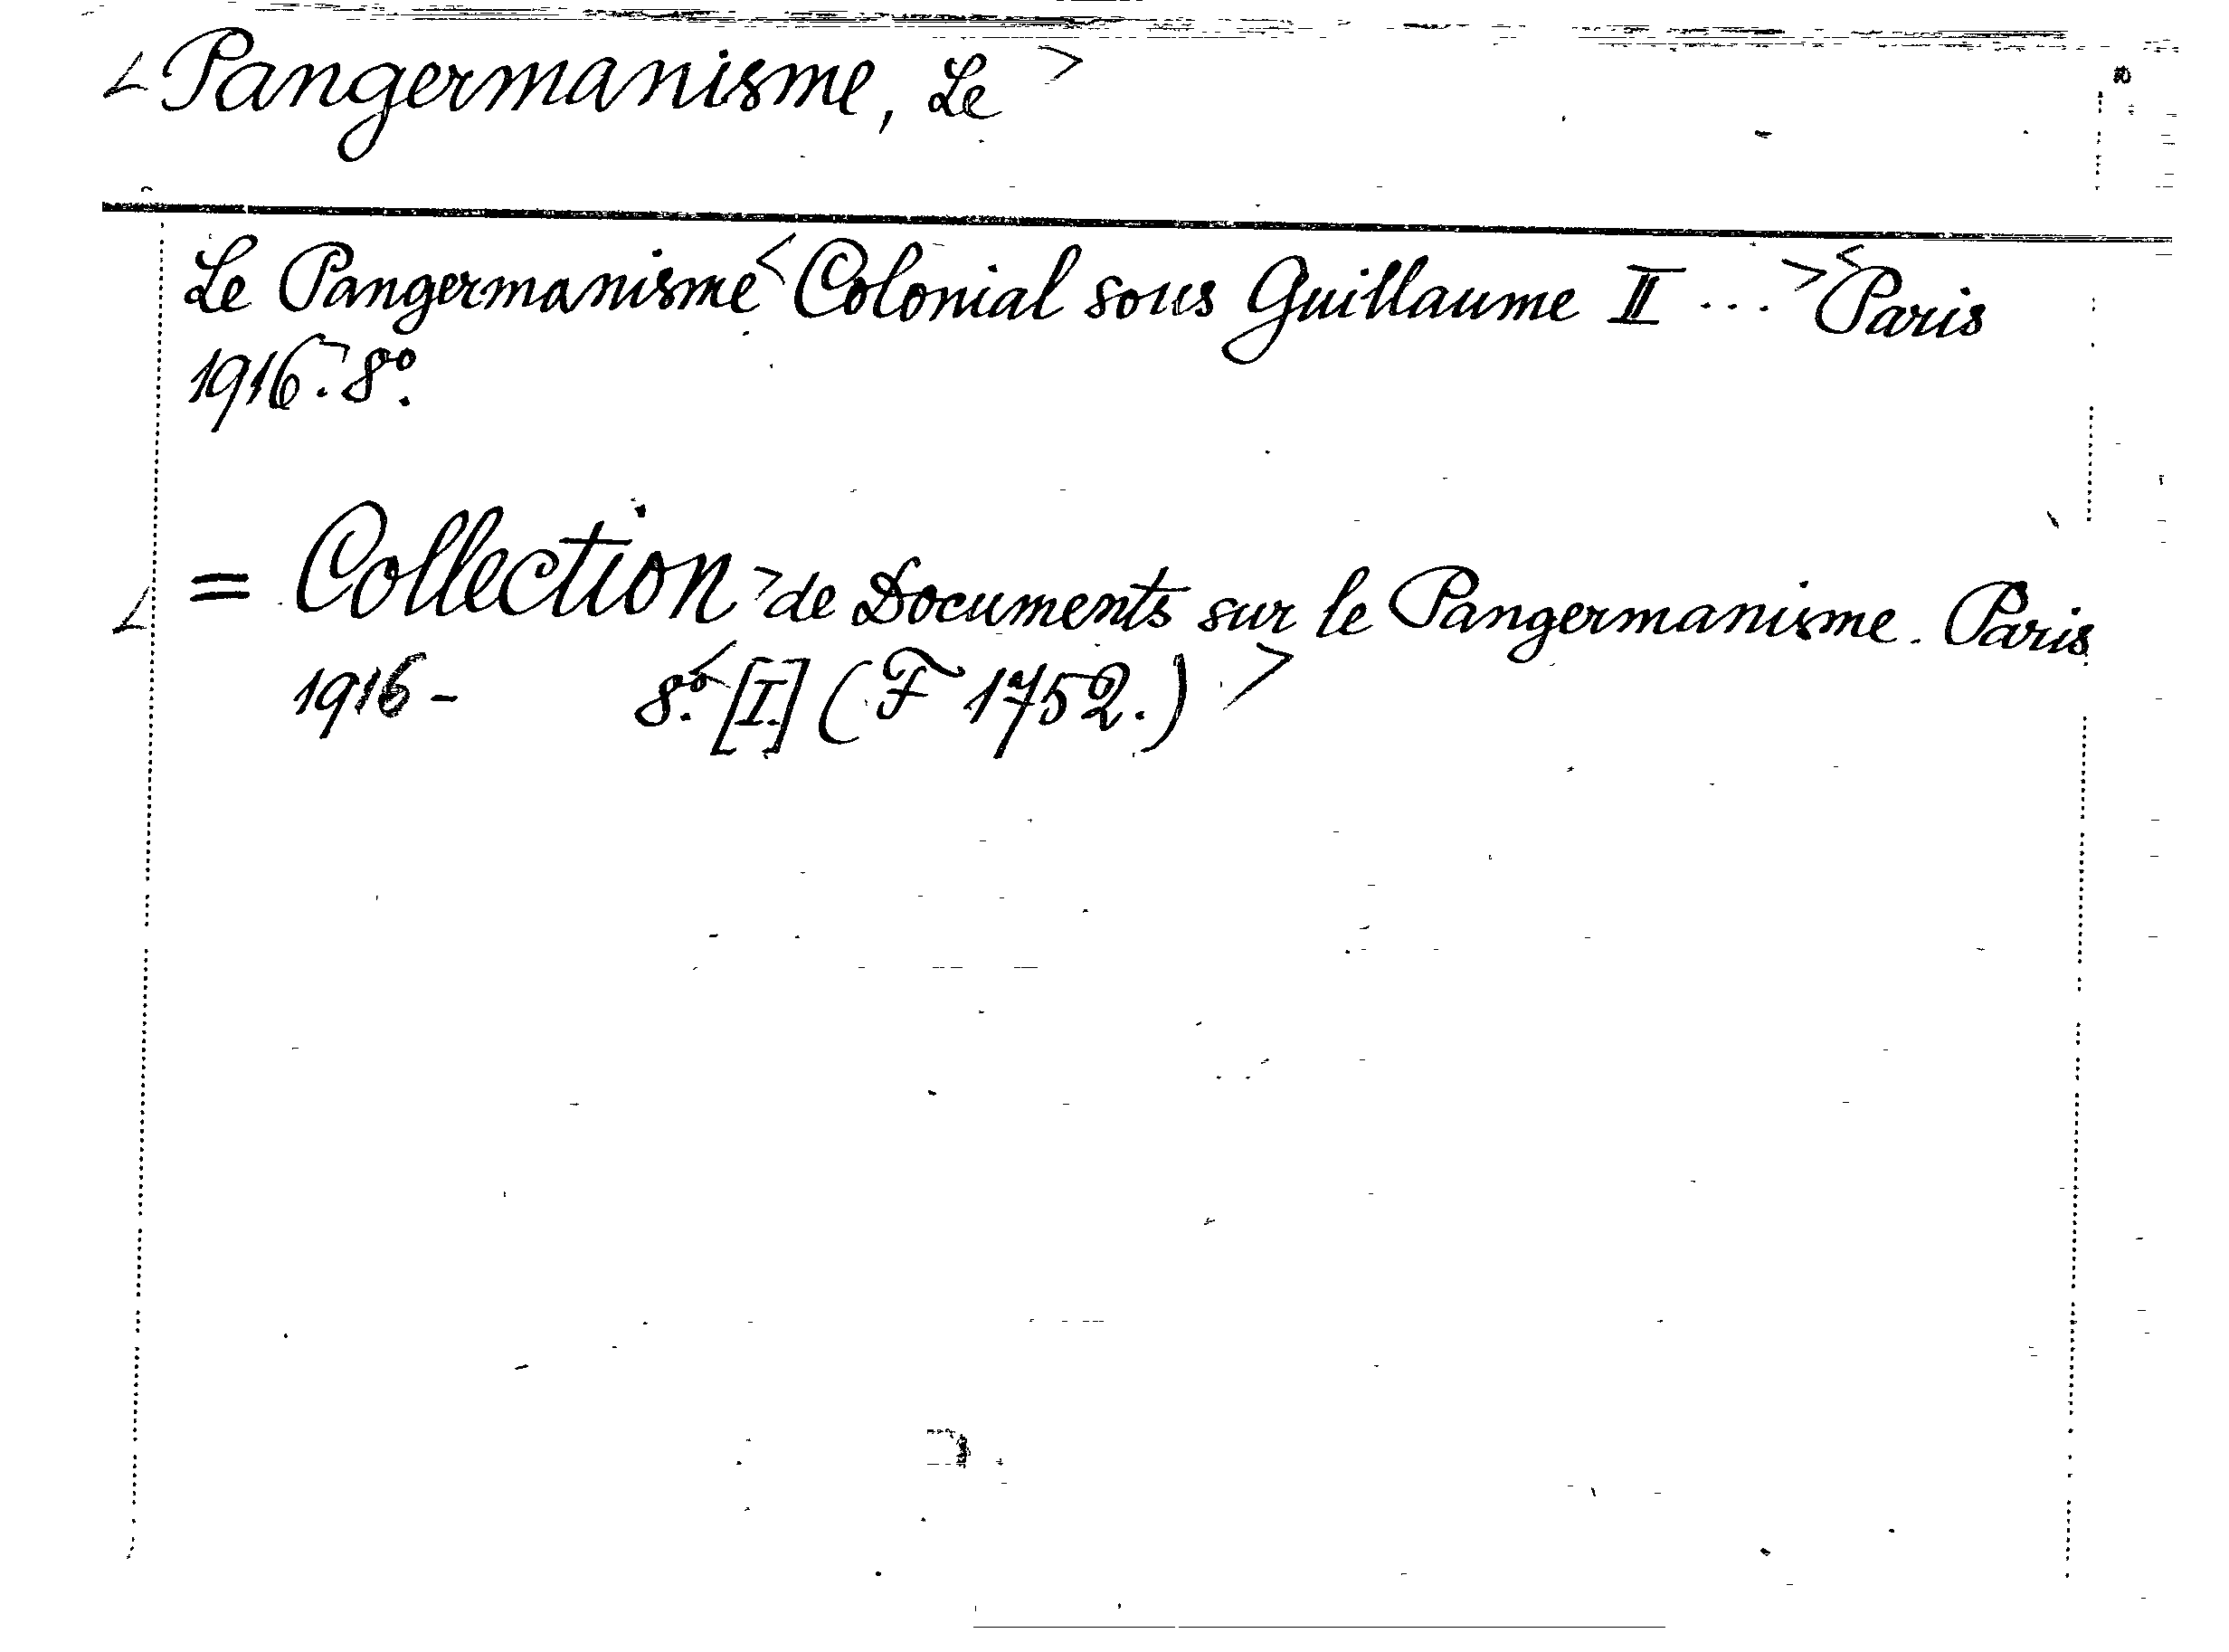 <Pangermanisme, Le>
Le Pangermanisme <Colonial sous Guillaume II ...> <Paris
1916>. 8º.
<= Collection> de Documents sur le Pangermanisme. Paris
1916- 8º. <[I.] (F 1752.)>